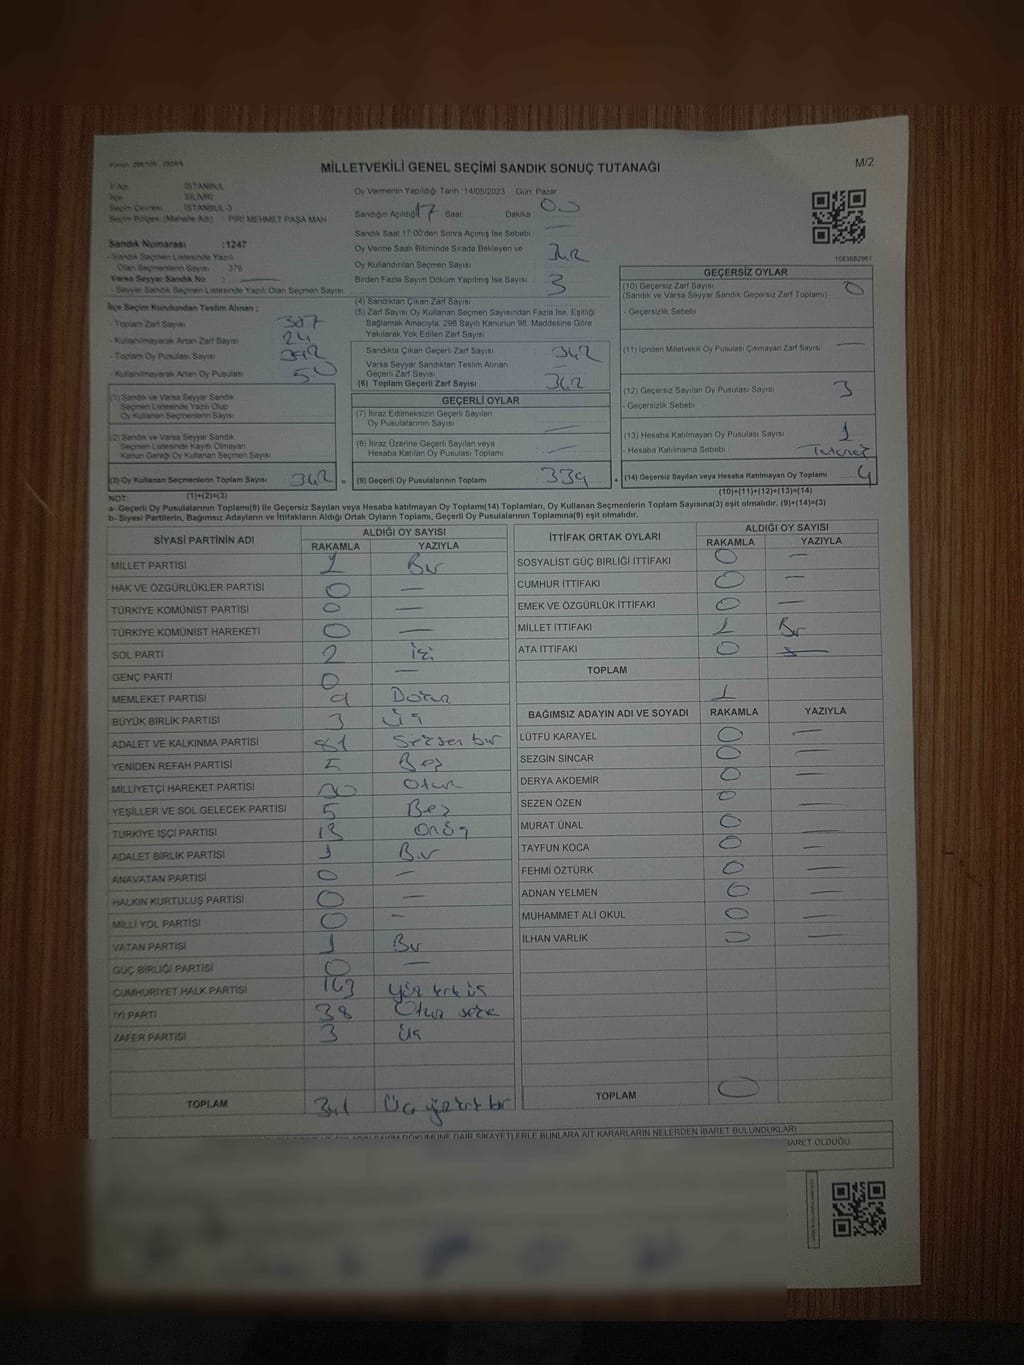 MİLLETVEKİLİ GENEL SEÇİMİ SANDIK SONUÇ TUTANAĞI
M/2
İl Adı : İSTANBUL
İlçe : SİLİVRİ
Seçim Çevresi : İSTANBUL-3
Seçim Bölgesi (Mahalle Adı) : PİRİ MEHMET PAŞA MAH
Sandık Numarası :1247
- Sandık Seçmen Listesinde Yazılı
Olan Seçmenlerin Sayısı : 379
Varsa Seyyar Sandık No :
- Seyyar Sandık Listesinde Yazılı Olan Seçmen Sayısı
Oy Vermenin Yapıldığı Tarih :14/05/2023 Gün: Pazar
Sandığın Açıldığı 17 Saat Dakika : 00
Sandık Saat 17:00'den Sonra Açılmış İse Sebebi: —
Oy Verme Saati Bitiminde Sırada Bekleyen ve
Oy Kullandırılan Seçmen Sayısı 342
Birden Fazla Sayım Döküm Yapılmış İse Sayısı 3
1083682961
İlçe Seçim Kurulundan Teslim Alınan :
- Toplam Zarf Sayısı 387
- Kullanılmayarak Artan Zarf Sayısı 24
- Toplam Oy Pusulası Sayısı 392
- Kullanılmayarak Artan Oy Pusulası 50
(1) Sandık ve Varsa Seyyar Sandık
Seçmen Listesinde Yazılı Olup
Oy Kullanan Seçmenlerin Sayısı
(2) Sandık ve Varsa Seyyar Sandık
Seçmen Listesinde Kayıtlı Olmayan
Kanun Gereği Oy Kullanan Seçmen Sayısı
(3) Oy Kullanan Seçmenlerin Toplam Sayısı 342 =
(4) Sandıktan Çıkan Zarf Sayısı
(5) Zarf Sayısı Oy Kullanan Seçmen Sayısından Fazla İse, Eşitliği
Sağlamak Amacıyla, 298 Sayılı Kanunun 98. Maddesine Göre
Yakılarak Yok Edilen Zarf Sayısı
Sandıkta Çıkan Geçerli Zarf Sayısı 342
Varsa Seyyar Sandıktan Teslim Alınan
Geçerli Zarf Sayısı —
(6) Toplam Geçerli Zarf Sayısı 342
GEÇERLİ OYLAR
(7) İtiraz Edilmeksizin Geçerli Sayılan
Oy Pusulalarının Sayısı —
(8) İtiraz Üzerine Geçerli Sayılan veya
Hesaba Katılan Oy Pusulası Toplamı —
(9) Geçerli Oy Pusulalarının Toplamı 339 +
GEÇERSİZ OYLAR
(10) Geçersiz Zarf Sayısı 0
(Sandık ve Varsa Seyyar Sandık Geçersiz Zarf Toplamı)
- Geçersizlik Sebebi
(11) İçinden Milletvekili Oy Pusulası Çıkmayan Zarf Sayısı —
(12) Geçersiz Sayılan Oy Pusulası Sayısı 3
- Geçersizlik Sebebi
(13) Hesaba Katılmayan Oy Pusulası Sayısı 1
- Hesaba Katılmama Sebebi
(14) Geçersiz Sayılan veya Hesaba Katılmayan Oy Toplamı 4
NOT: (1)+(2)=(3)
(10)+(11)+(12)+(13)=(14)
a- Geçerli Oy Pusulalarının Toplamı(9) ile Geçersiz Sayılan veya Hesaba katılmayan Oy Toplamı(14) Toplamları, Oy Kullanan Seçmenlerin Toplam Sayısına(3) eşit olmalıdır. (9)+(14)=(3)
b- Siyasi Partilerin, Bağımsız Adayların ve İttifakların Aldığı Ortak Oyların Toplamı, Geçerli Oy Pusulalarının Toplamına(9) eşit olmalıdır.
SİYASİ PARTİNİN ADI
ALDIĞI OY SAYISI
RAKAMLA YAZIYLA
MİLLET PARTİSİ 1 Bir
HAK VE ÖZGÜRLÜKLER PARTİSİ 0 —
TÜRKİYE KOMÜNİST PARTİSİ 0 —
TÜRKİYE KOMÜNİST HAREKETİ 0 —
SOL PARTİ 2 İki
GENÇ PARTİ 0 —
MEMLEKET PARTİSİ 9 Dokuz
BÜYÜK BİRLİK PARTİSİ 3 Üç
ADALET VE KALKINMA PARTİSİ 81 Seksen bir
YENİDEN REFAH PARTİSİ 5 Beş
MİLLİYETÇİ HAREKET PARTİSİ 30 Otuz
YEŞİLLER VE SOL GELECEK PARTİSİ 5 Beş
TÜRKİYE İŞÇİ PARTİSİ 13 Onüç
ADALET BİRLİK PARTİSİ 1 Bir
ANAVATAN PARTİSİ 0 —
HALKIN KURTULUŞ PARTİSİ 0 —
MİLLİ YOL PARTİSİ 0 —
VATAN PARTİSİ 1 Bir
GÜÇ BİRLİĞİ PARTİSİ 0 —
CUMHURİYET HALK PARTİSİ 163
İYİ PARTİ 38 Otuz sekiz
ZAFER PARTİSİ 3 Üç
TOPLAM 341
İTTİFAK ORTAK OYLARI
ALDIĞI OY SAYISI
RAKAMLA YAZIYLA
SOSYALİST GÜÇ BİRLİĞİ İTTİFAKI 0 —
CUMHUR İTTİFAKI 0 —
EMEK VE ÖZGÜRLÜK İTTİFAKI 0 —
MİLLET İTTİFAKI 1 Bir
ATA İTTİFAKI 0 —
TOPLAM
1
BAĞIMSIZ ADAYIN ADI VE SOYADI RAKAMLA YAZIYLA
LÜTFÜ KARAYEL 0 —
SEZGİN SİNCAR 0 —
DERYA AKDEMİR 0 —
SEZEN ÖZEN 0
MURAT ÜNAL 0 —
TAYFUN KOCA 0 —
FEHMİ ÖZTÜRK 0 —
ADNAN YELMEN 0 —
MUHAMMET ALİ OKUL 0 —
İLHAN VARLIK 0 —
TOPLAM 0
SAYIM DÖKÜMÜNE DAİR ŞİKAYETLERLE BUNLARA AİT KARARLARIN NELERDEN İBARET BULUNDUKLARI
İBARET OLDUĞU